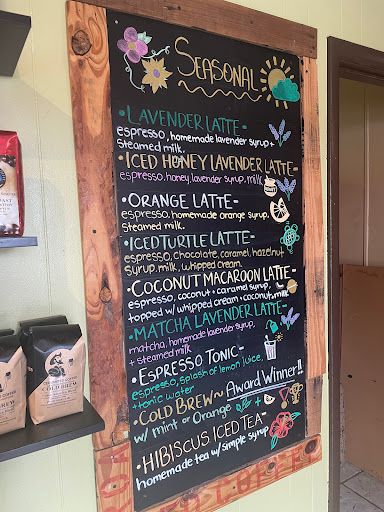 SEASONAL
•LAVENDER LATTE-
espresso, homemade lavender syrup +
steamed milk.
•ICED HONEY LAVENDER LATTE-
espresso, honey, lavender syrup, milk
HONEY
•ORANGE LATTE-
espresso, homemade orange syrup,
steamed milk.
•ICED TURTLE LATTE-
espresso, chocolate, caramel, hazelnut
syrup, milk, whipped cream.
•COCONUT MACAROON LATTE-
espresso, coconut + caramel syrup,
topped w/ whipped cream + coconut milk
•MATCHA LAVENDER LATTE-
matcha, homemade lavender syrup,
+ steamed milk
•ESPRESSO TONIC-
espresso, splash of lemon juice,
+tonic water
•COLD BREW~ Award Winner!!
w/ mint or Orange
•HIBISCUS ICED TEA-
homemade tea w/simple syrup
COLD BREW